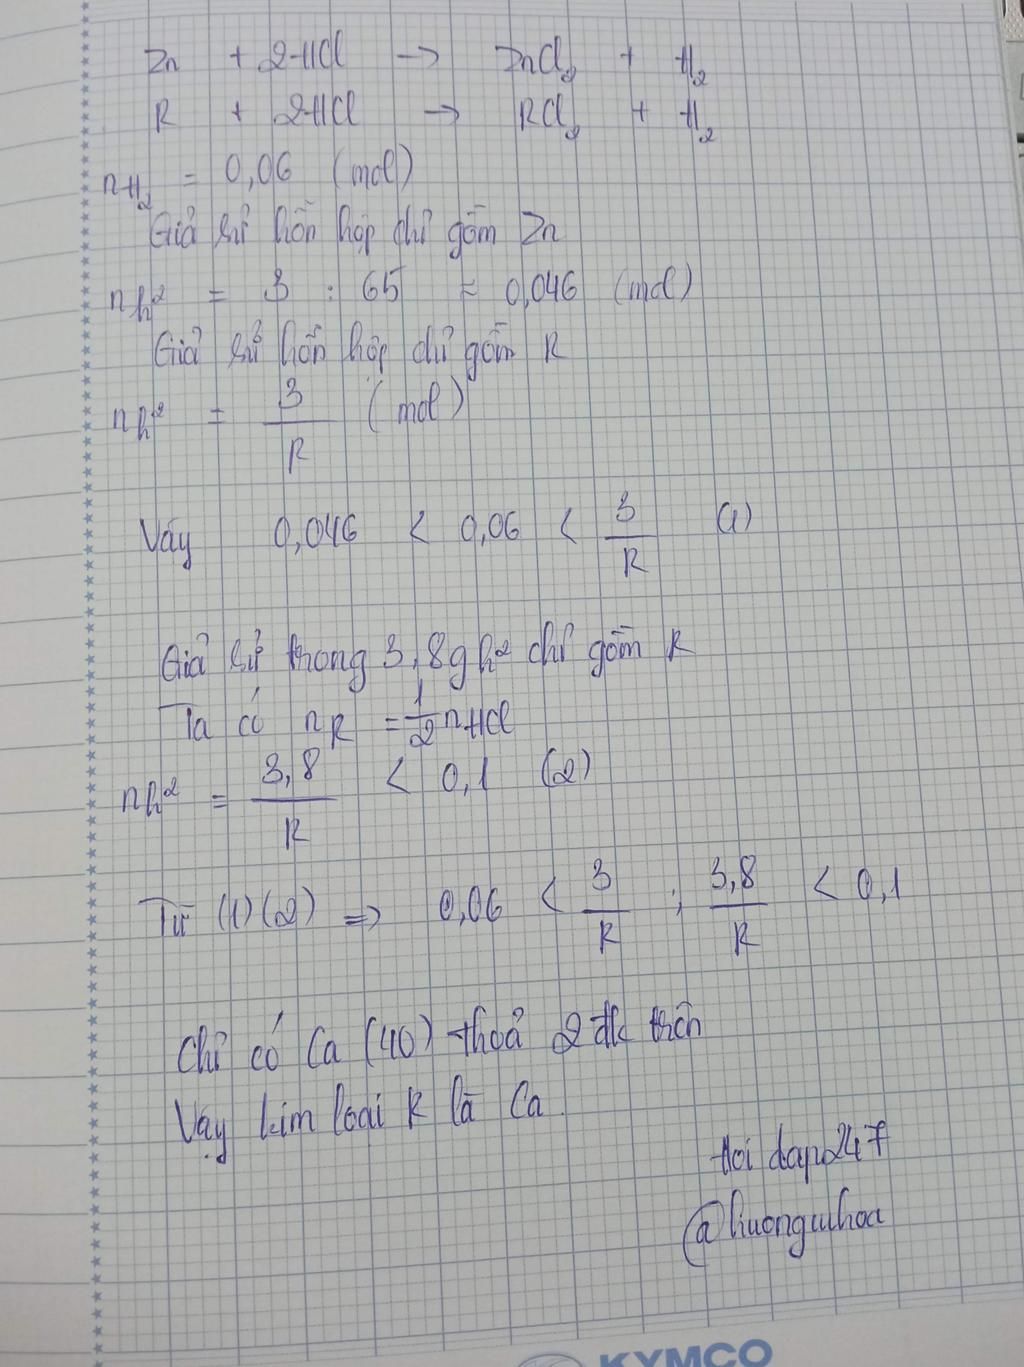 Zn + 2HCl → ZnCl₂ + H₂
R + 2HCl → RCl₂ + H₂
nH₂ = 0,06 (mol)
Giả sử hỗn hợp chỉ gồm Zn
nh² = 3 : 65 ≈ 0,046 (mol)
Giả sử hỗn hợp chỉ gồm R
nh² = 3/R (mol)
Vậy 0,046 < 0,06 < 3/R (1)
Giả sử trong 3,8g h² chỉ gồm R
Ta có nR = 1/2 nHCl
nh² = 3,8/R < 0,1 (2)
Từ (1)(2) => 0,06 < 3/R ; 3,8/R < 0,1
Chỉ có Ca (40) thoả 2 đk trên
Vậy kim loại R là Ca
Hoi dap247
@huonguuhoa
KYMCO